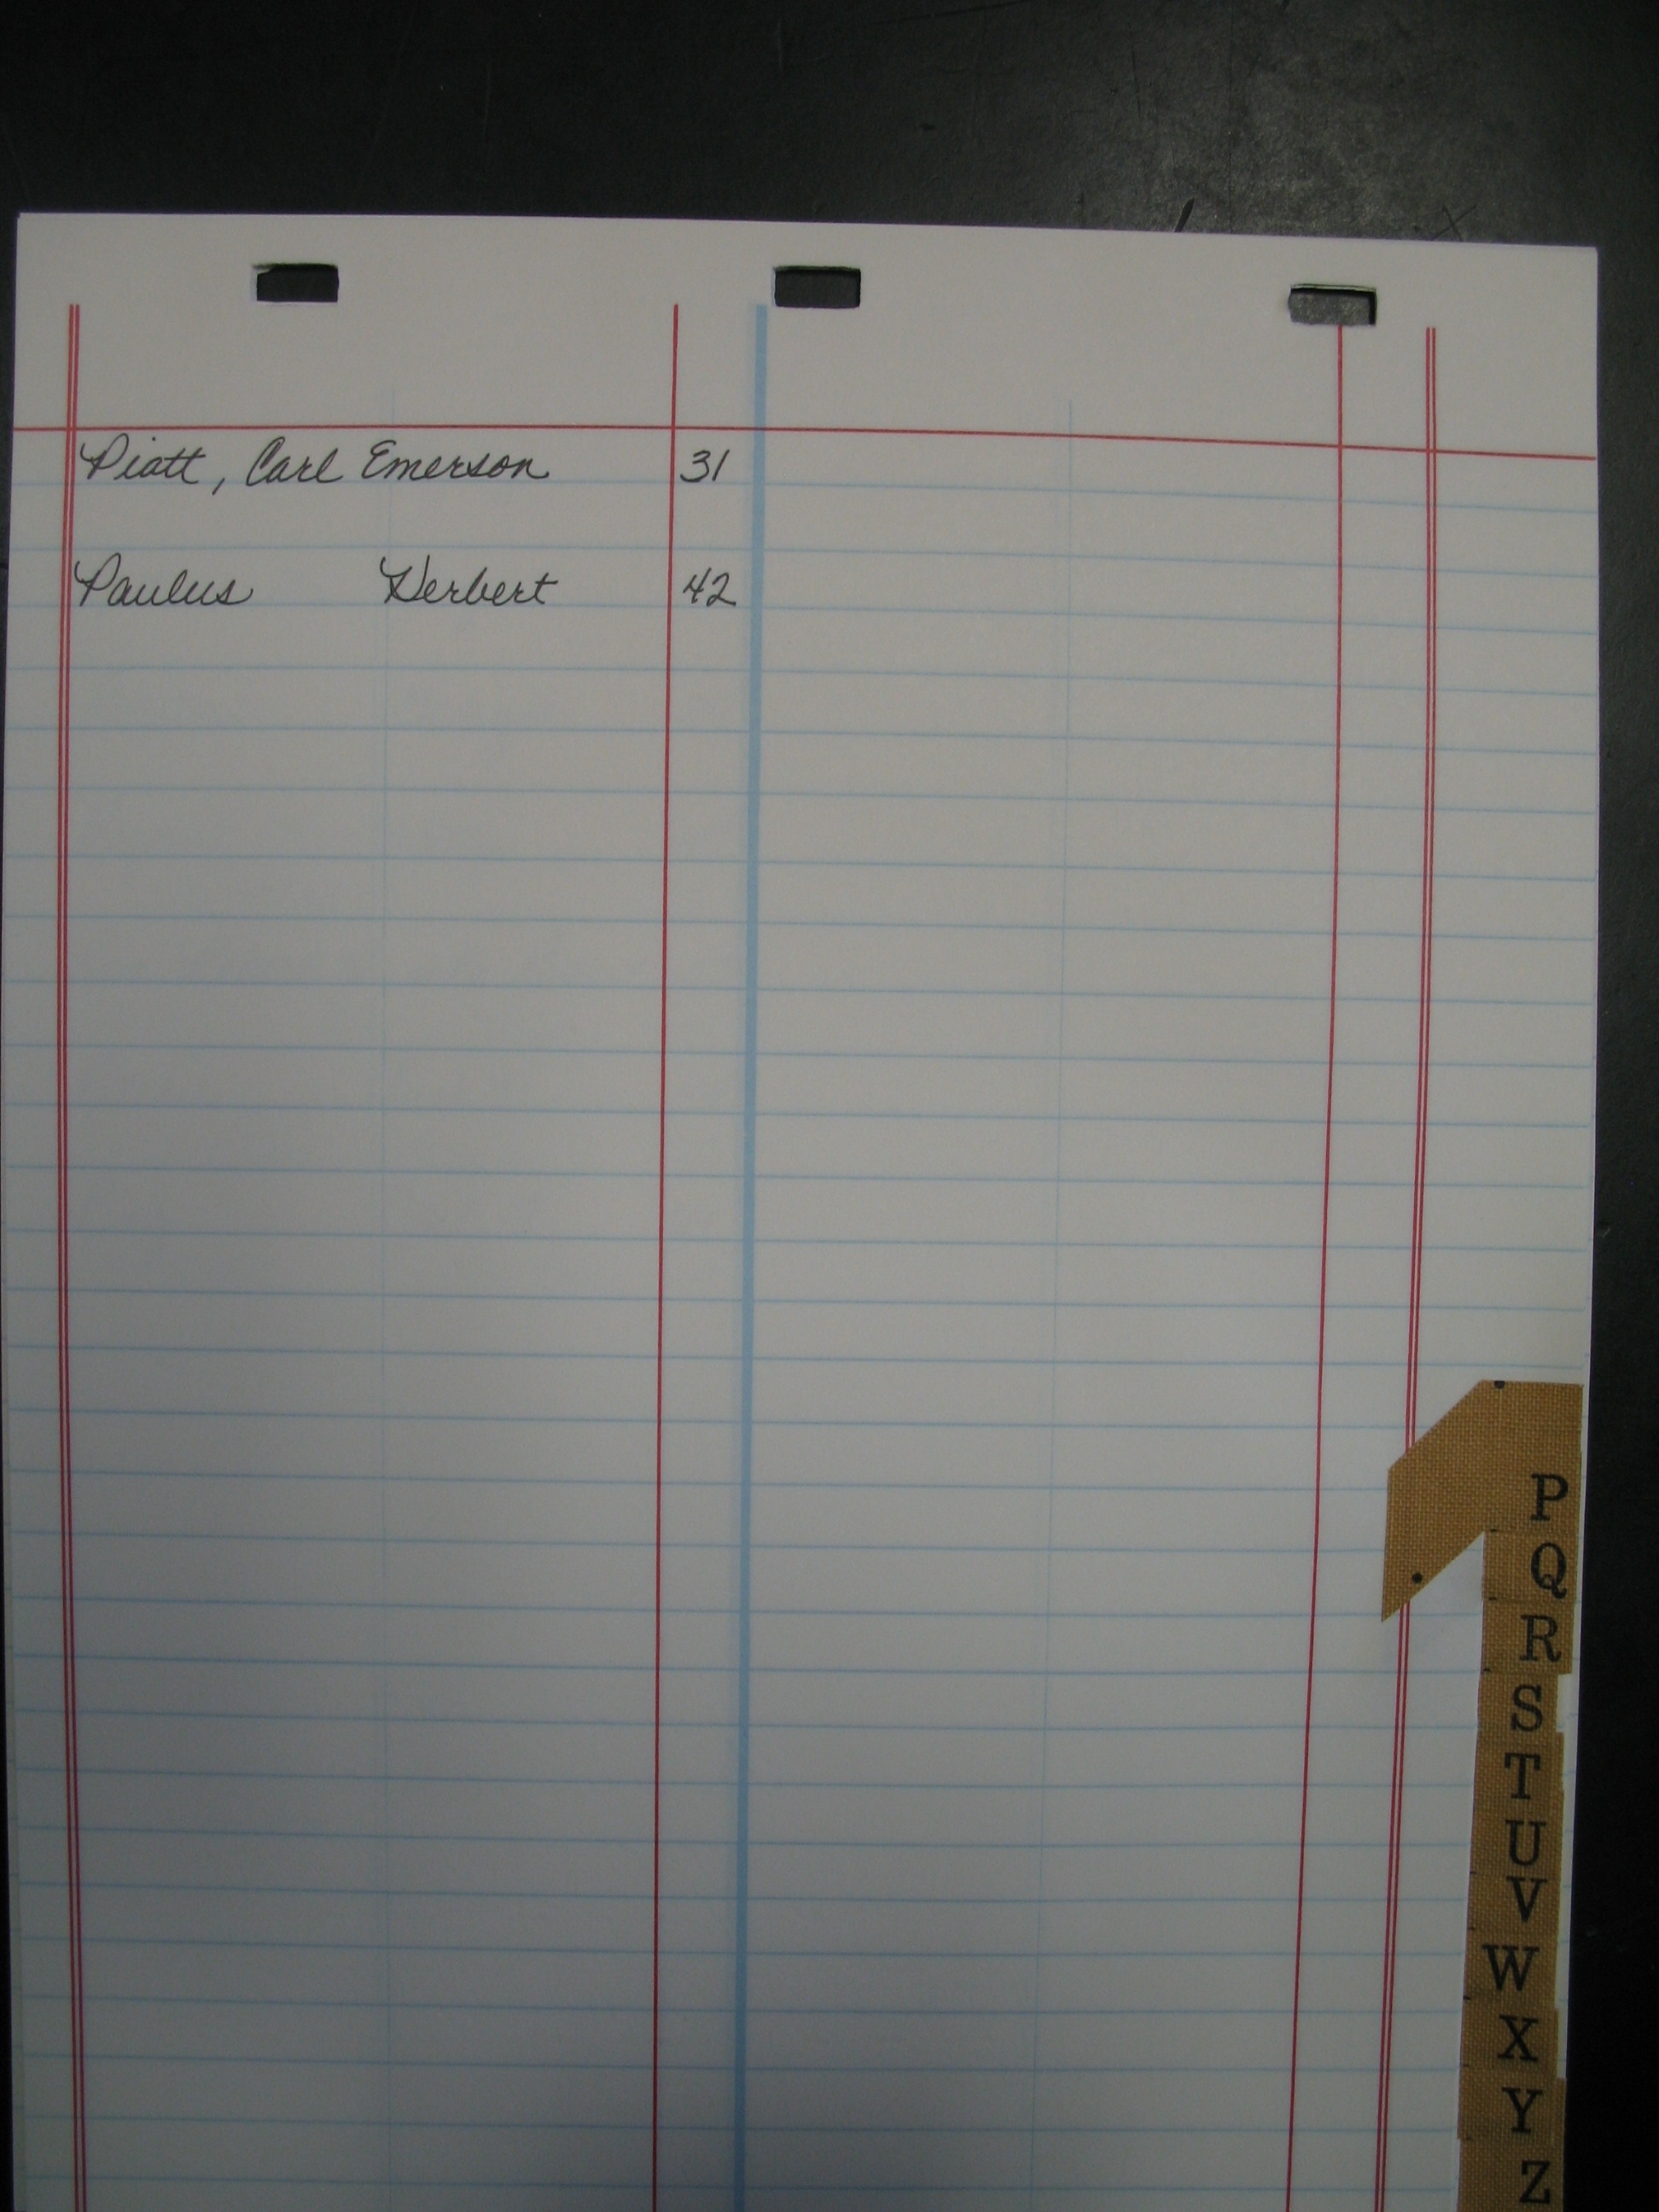 Piatt, Carl Emerson 31
Paulus Herbert 42
P
Q
R
S
T
U
V
W
X
Y
Z